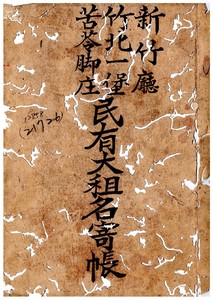 新竹廳
竹北一堡
苦苓脚庄
民有大租名寄帳